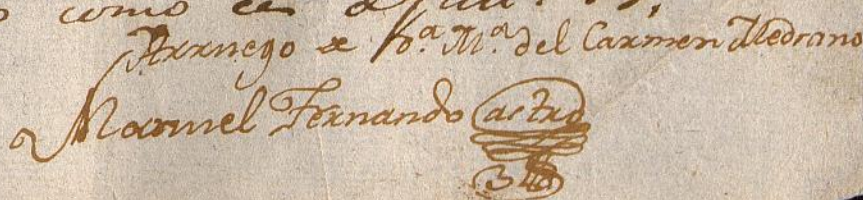 como
Arruego de D.ª M.ª del Carmen Medrano
Manuel Fernando Castro